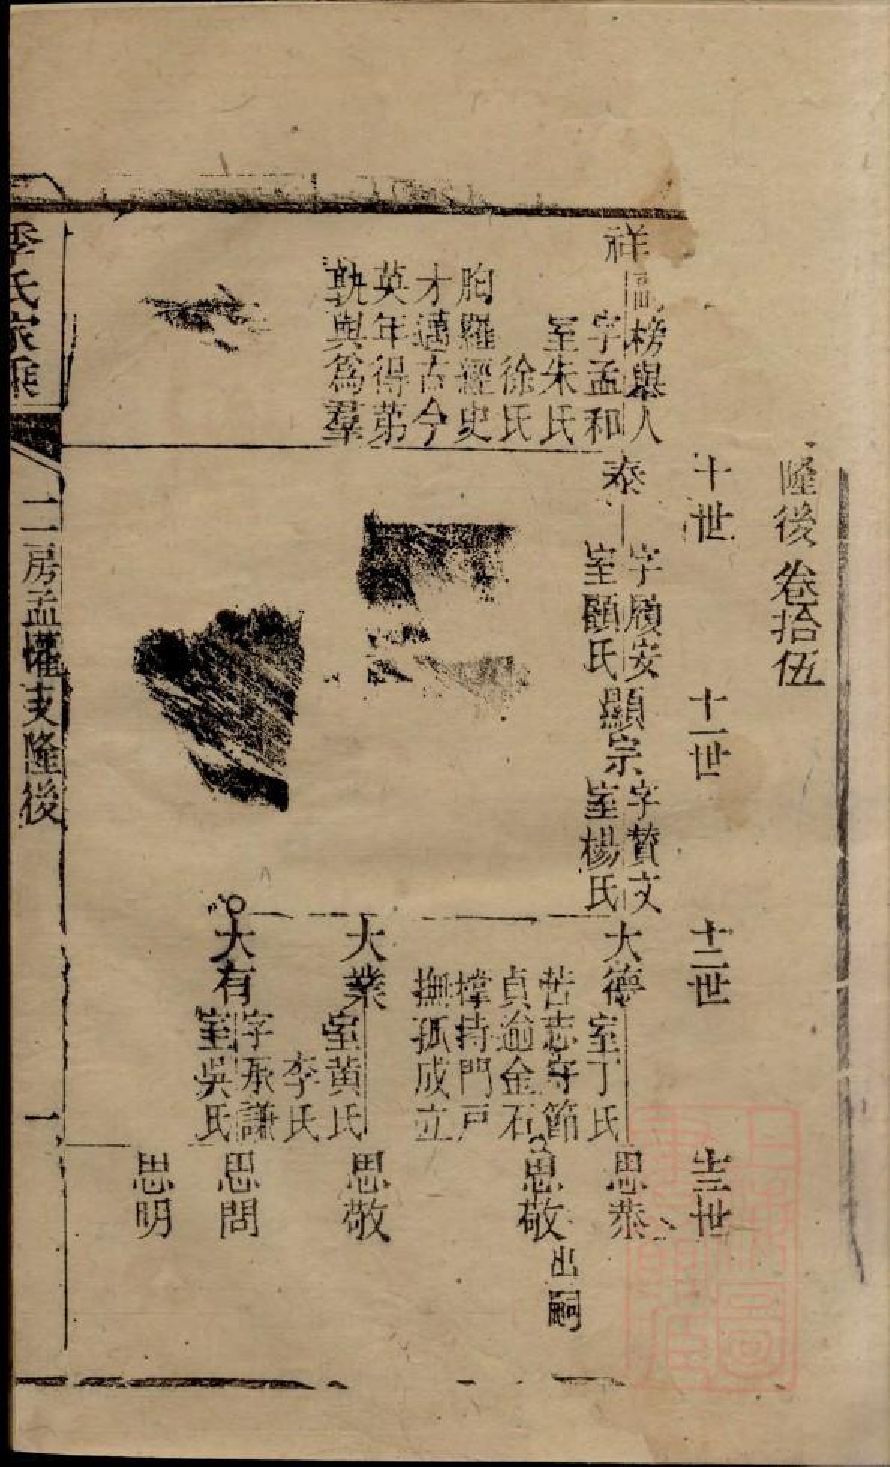 隆後 卷拾伍
十世
十一世
十二世
十三世
祥
榜舉人
字孟和
室朱氏
徐氏
胸羅經史
才邁古今
英年得第
孰與爲羣
泰
字履安
室顧氏
顯宗
字贊文
室楊氏
大德
室丁氏
苦志守節
貞逾金石
撑持門戸
撫孤成立
大業
室黄氏
李氏
大有
字承謙
室吳氏
思恭
思敬
出嗣
思敬
思問
思明
季氏家乘
二房孟㩲支隆後
一